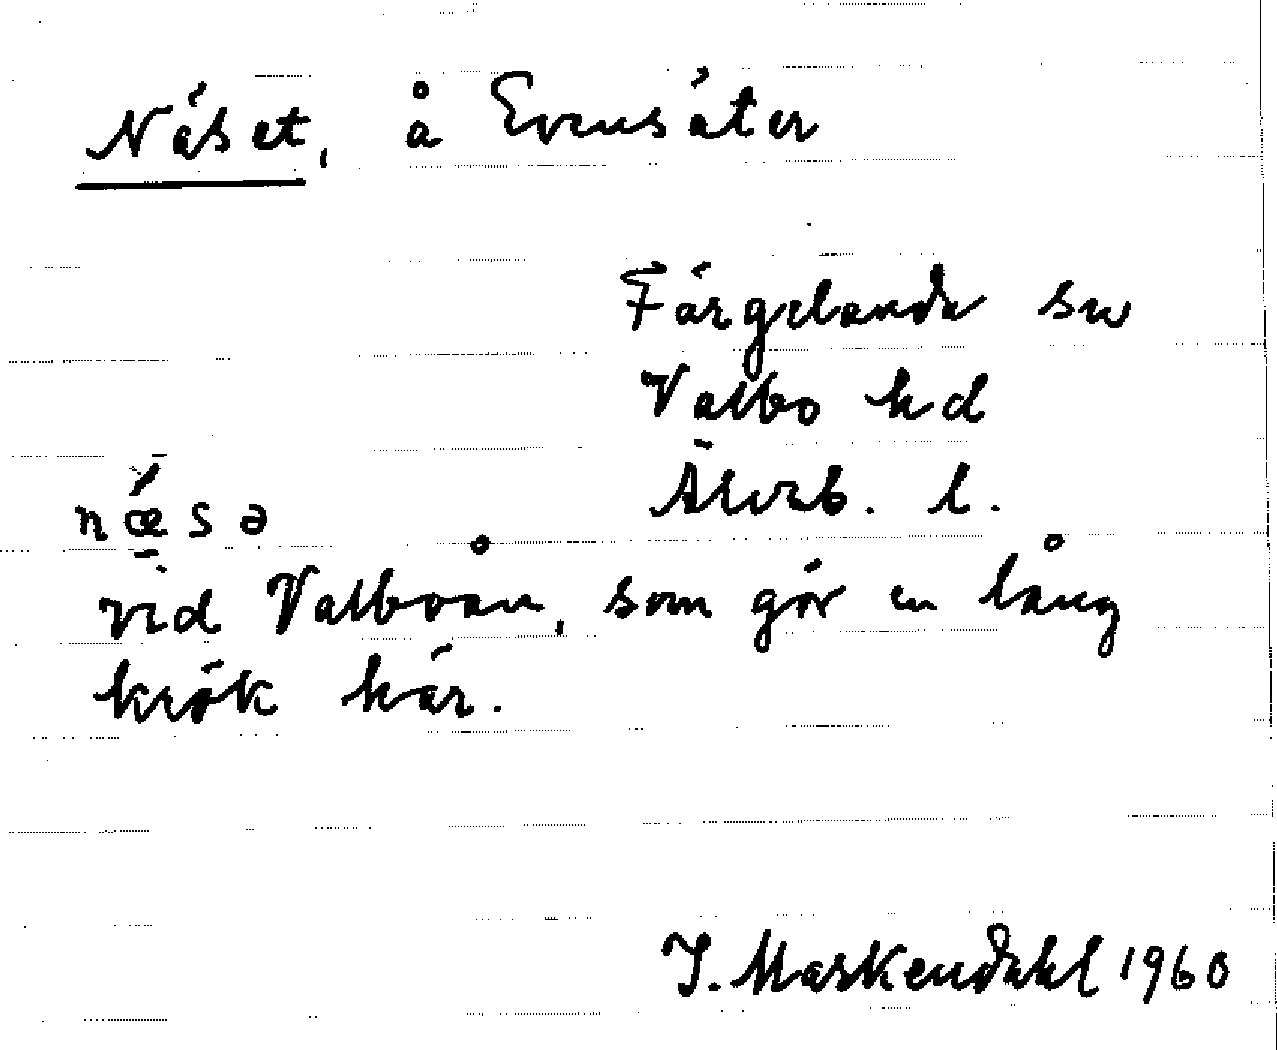 Näset, å Evensäter
Färgelanda sn
Valbo hd
Älvsb. l.
næ̀sə
vid Valboån, som gör en lång
krök här.
I. Maskendahl 1960